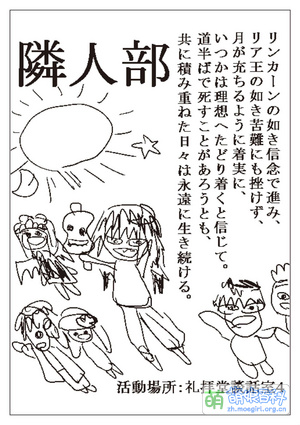 隣人部
リンカーンの如き信念で進み、
リア王の如き苦難にも挫けず、
月が充ちるように着実に、
いつかは理想へたどり着くと信じて。
道半ばで死すことがあろうとも、
共に積み重ねた日々は永遠に生き続ける。
活動場所:礼拝堂談話室4
萌 萌娘百科
zh.moegirl.org.cn